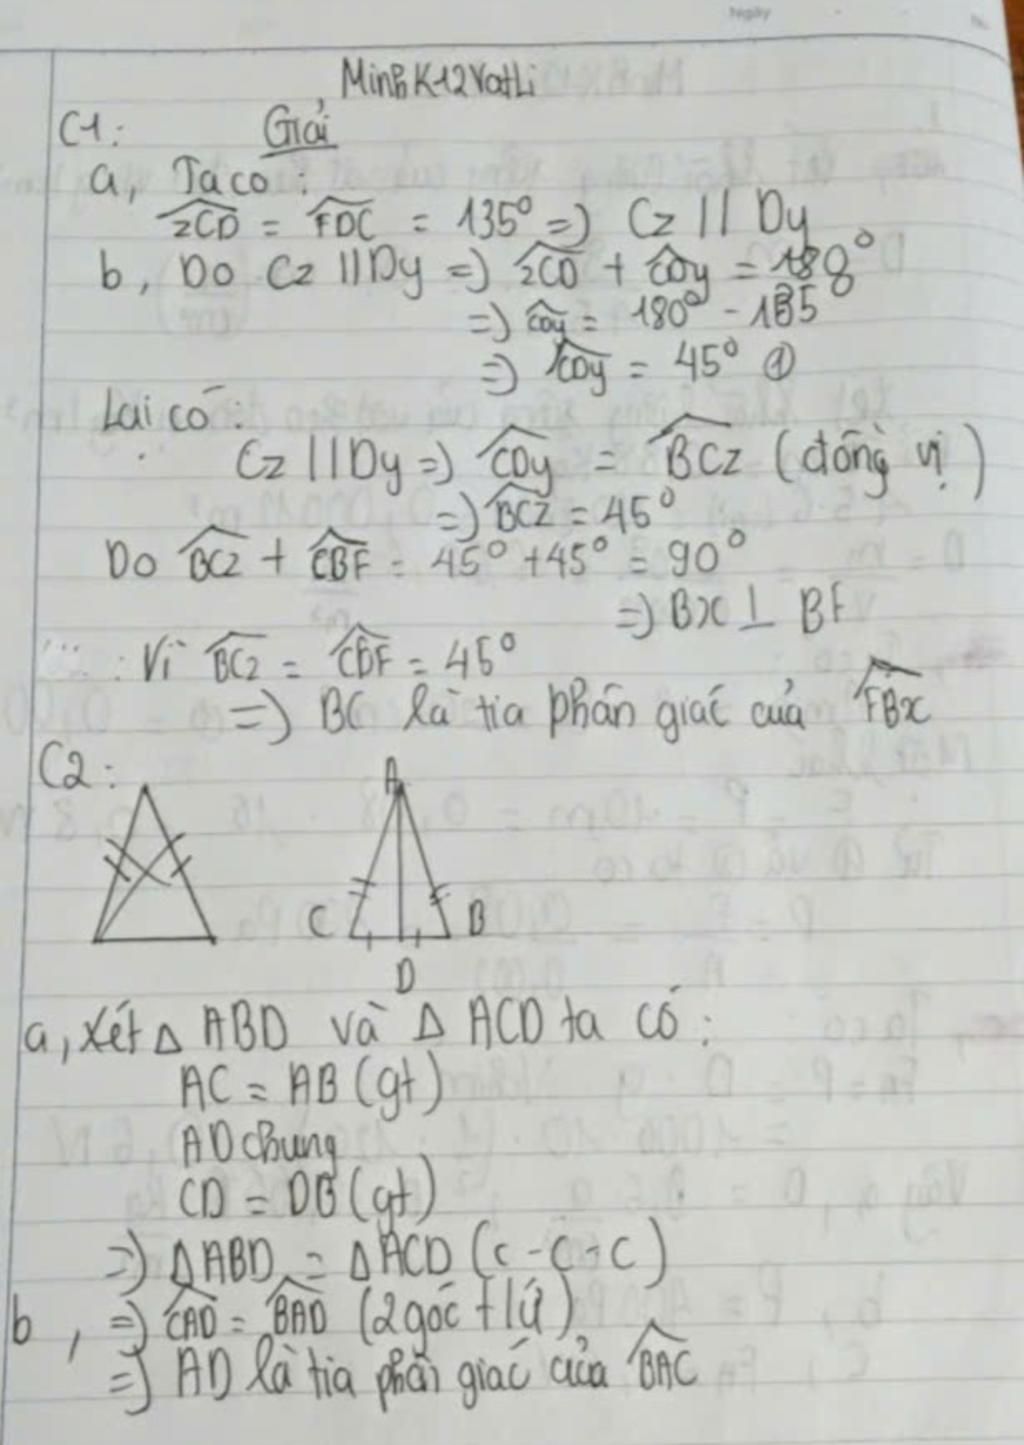 Ngày
MinhK12VatLi
C1: Giải
a, Ta có:
zCD = FDC = 135° => Cz // Dy
b, Do Cz // Dy => zCD + CDy = 180°
=> CDy = 180° - 135
=> CDy = 45° ①
Lại có:
Cz // Dy => CDy = BCz (đồng vị)
=> BCz = 45°
Do BCz + CBF = 45° + 45° = 90°
=> Bx ⊥ BF
Vì BCz = CBF = 45°
=> BC là tia phân giác của FBx
C2:
A
C B
D
a, Xét Δ ABD và Δ ACD ta có:
AC = AB (gt)
AD chung
CD = DB (gt)
=> Δ ABD = Δ ACD (c - c - c)
b, => CAD = BAD (2 góc tứ)
=> AD là tia phân giác của BAC